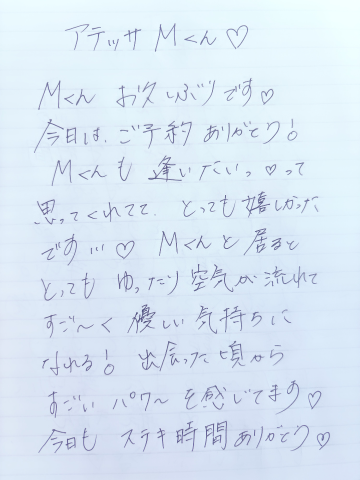 アテッサ Mくん♡
Mくん お久しぶりです♡
今日は、ご予約ありがとう!
Mくんも 逢いたいっ♡って
思ってくれてて、とっても嬉しかった
です!!!♡ Mくんと居ると
とっても ゆったり空気が流れて
すご〜く優しい気持ちに
なれる! 出会った頃から
すごい パワ〜を感じてます♡
今日も ステキ時間ありがとう♡